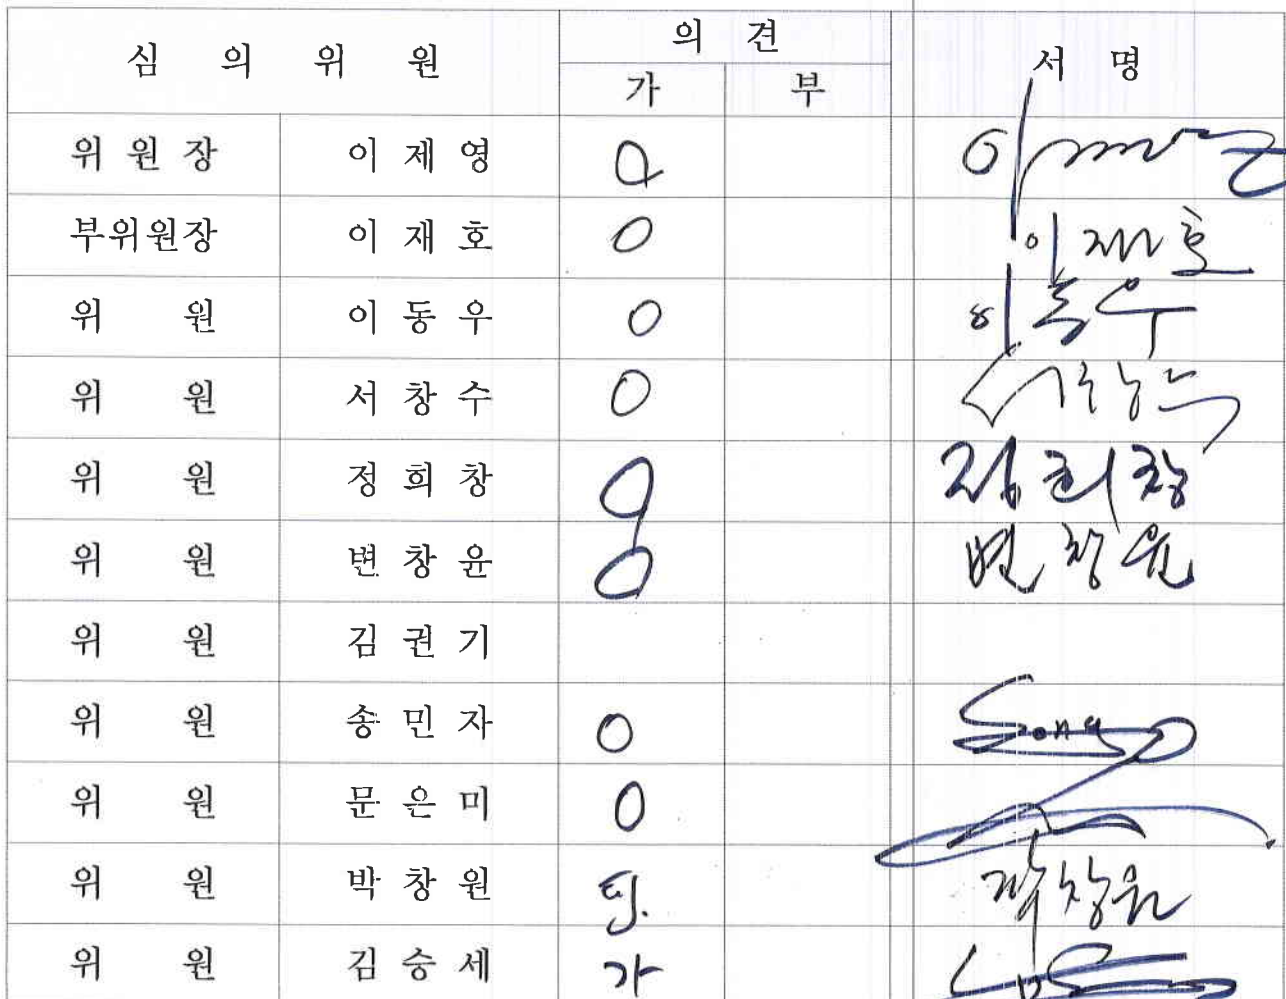 심 의 위 원 의 견 서 명
가 부
위 원 장 이 제 영 O
부위원장 이 재 호 O 이재호
위 원 이 동 우 O 이동우
위 원 서 창 수 O
위 원 정 희 창 O 정희창
위 원 변 창 윤 O 변창윤
위 원 김 권 기
위 원 송 민 자 O Song
위 원 문 은 미 O
위 원 박 창 원 박창원
위 원 김 승 세 가